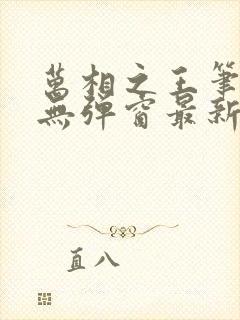 萬相之王筆
無彈窗最新
直八